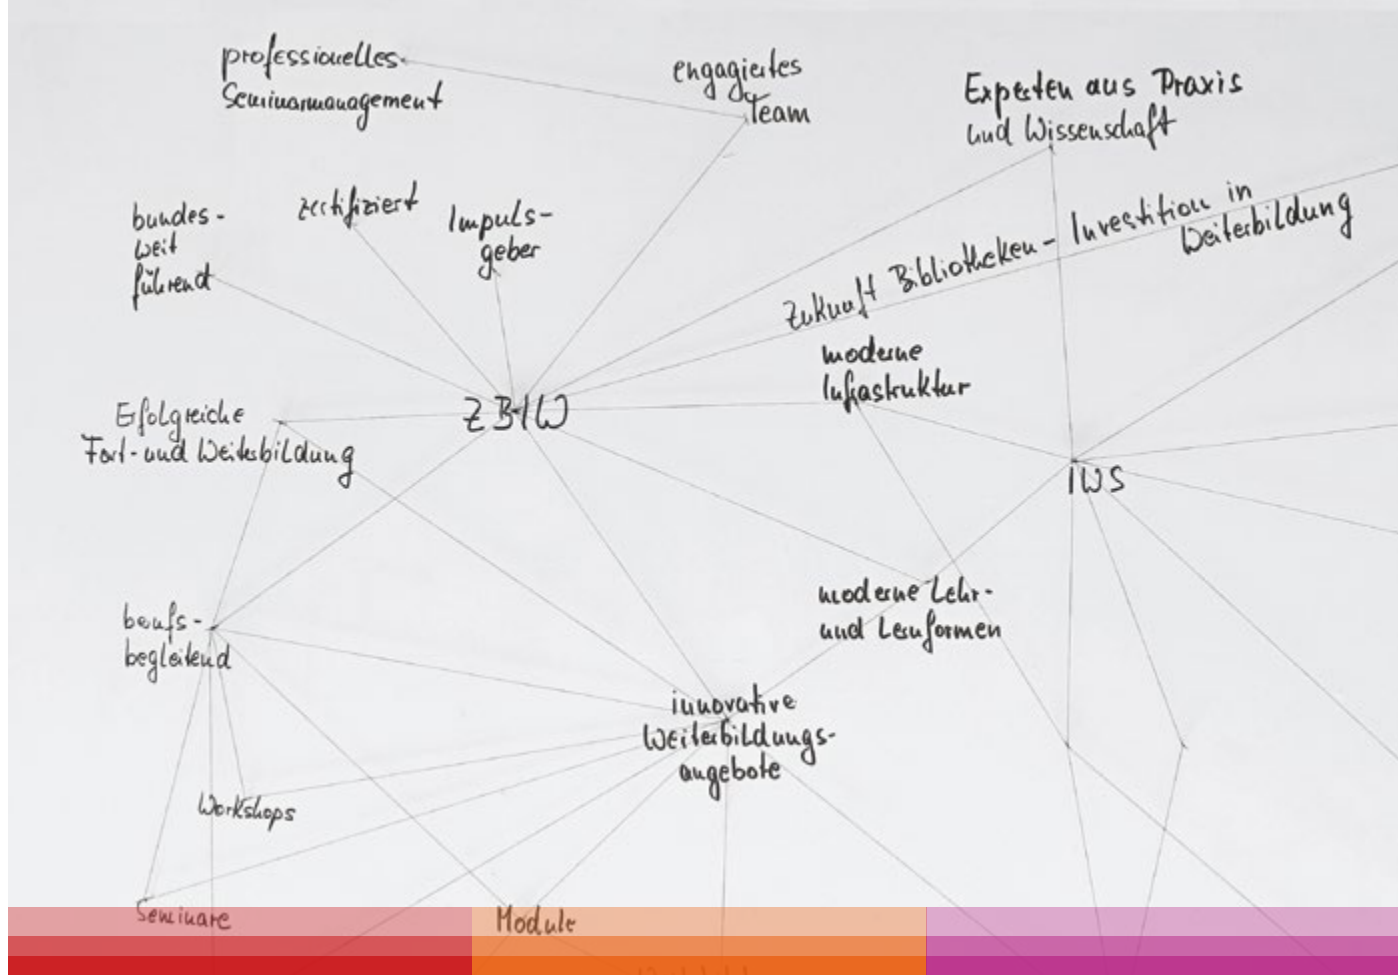 professionelles
Seminarmanagement
engagiertes
Team
Experten aus Praxis
und Wissenschaft
bundes-
weit
führend
zertifiziert
Impuls-
geber
Zukunft Bibliotheken - Investition in
Weiterbildung
moderne
Infrastruktur
Erfolgreiche
Fort- und Weiterbildung
ZBIW
IWS
moderne Lehr-
und Lernformen
berufs-
begleitend
innovative
Weiterbildungs-
angebote
Workshops
Seminare
Module